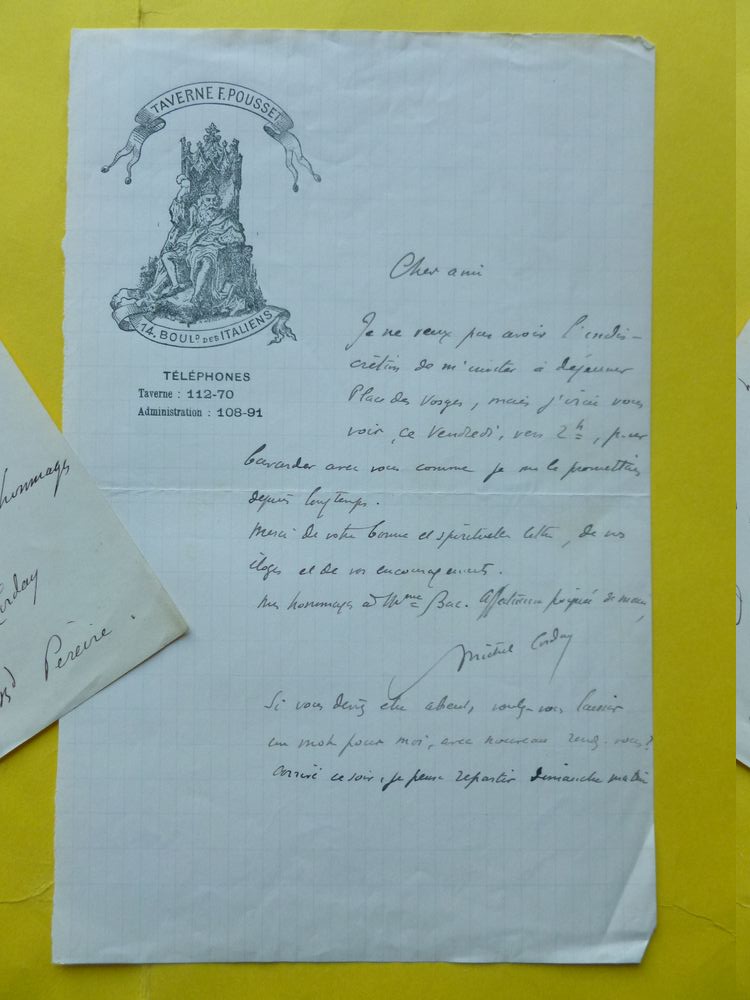 TAVERNE F. POUSSET
14. BOULD DES ITALIENS
TÉLÉPHONES
Taverne : 112-70
Administration : 108-91
Cher ami
Je ne veux pas avoir l'indis-
crétion de m'inviter à déjeuner
Place des Vosges, mais j'irai vous
voir, ce Vendredi, vers 2h, pour
bavarder avec vous comme je me le promettais
depuis longtemps.
Merci de votre bonne et spirituelle lettre, de vos
éloges et de vos encouragements.
Mes hommages à Mme Bac. Affectueuse poignée de main,
Michel Corday
Si vous deviez être absent, voulez-vous laisser
un mot pour moi, avec nouveau rendez-vous?
Arrivé ce soir, je pense repartir dimanche matin
hommages
Corday
Bd Péreire.